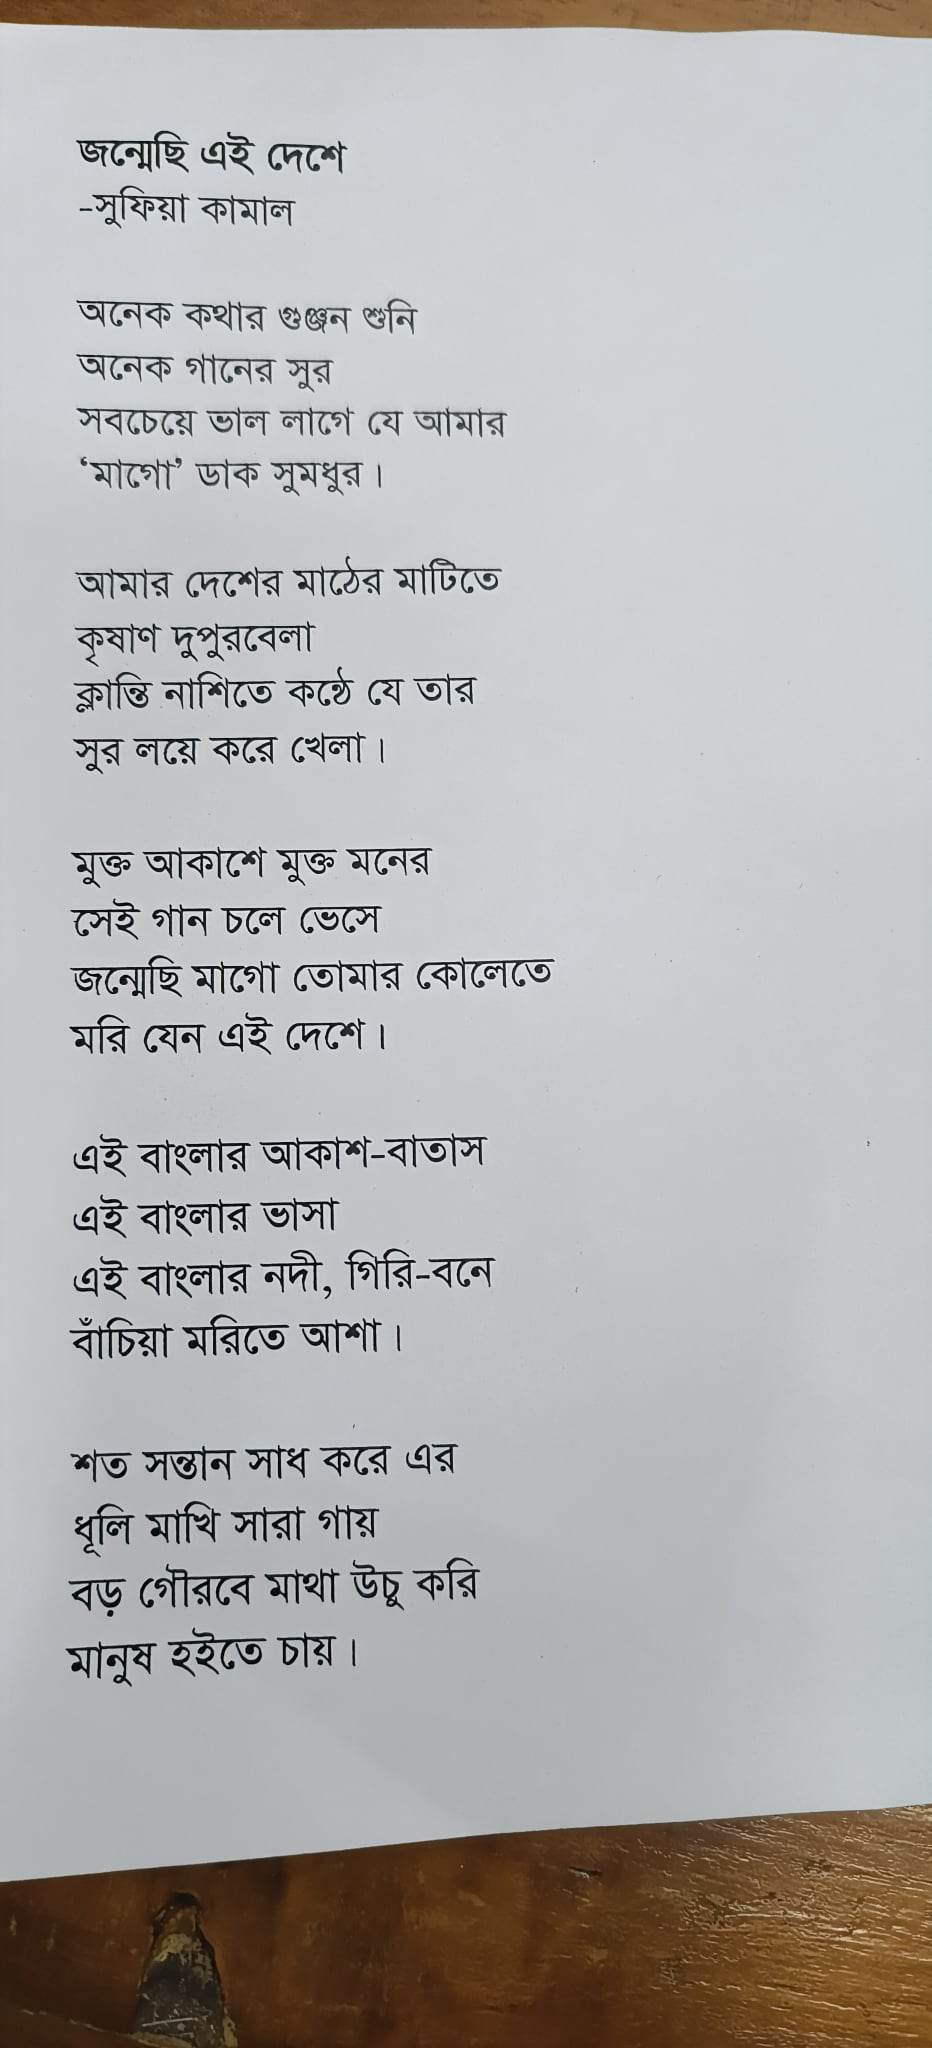 জন্মেছি এই দেশে
-সুফিয়া কামাল
অনেক কথার গুঞ্জন শুনি
অনেক গানের সুর
সবচেয়ে ভাল লাগে যে আমার
‘মাগো’ ডাক সুমধুর।
আমার দেশের মাঠের মাটিতে
কৃষাণ দুপুরবেলা
ক্লান্তি নাশিতে কন্ঠে যে তার
সুর লয়ে করে খেলা।
মুক্ত আকাশে মুক্ত মনের
সেই গান চলে ভেসে
জন্মেছি মাগো তোমার কোলেতে
মরি যেন এই দেশে।
এই বাংলার আকাশ-বাতাস
এই বাংলার ভাসা
এই বাংলার নদী, গিরি-বনে
বাঁচিয়া মরিতে আশা।
শত সন্তান সাধ করে এর
ধূলি মাখি সারা গায়
বড় গৌরবে মাথা উচু করি
মানুষ হইতে চায়।